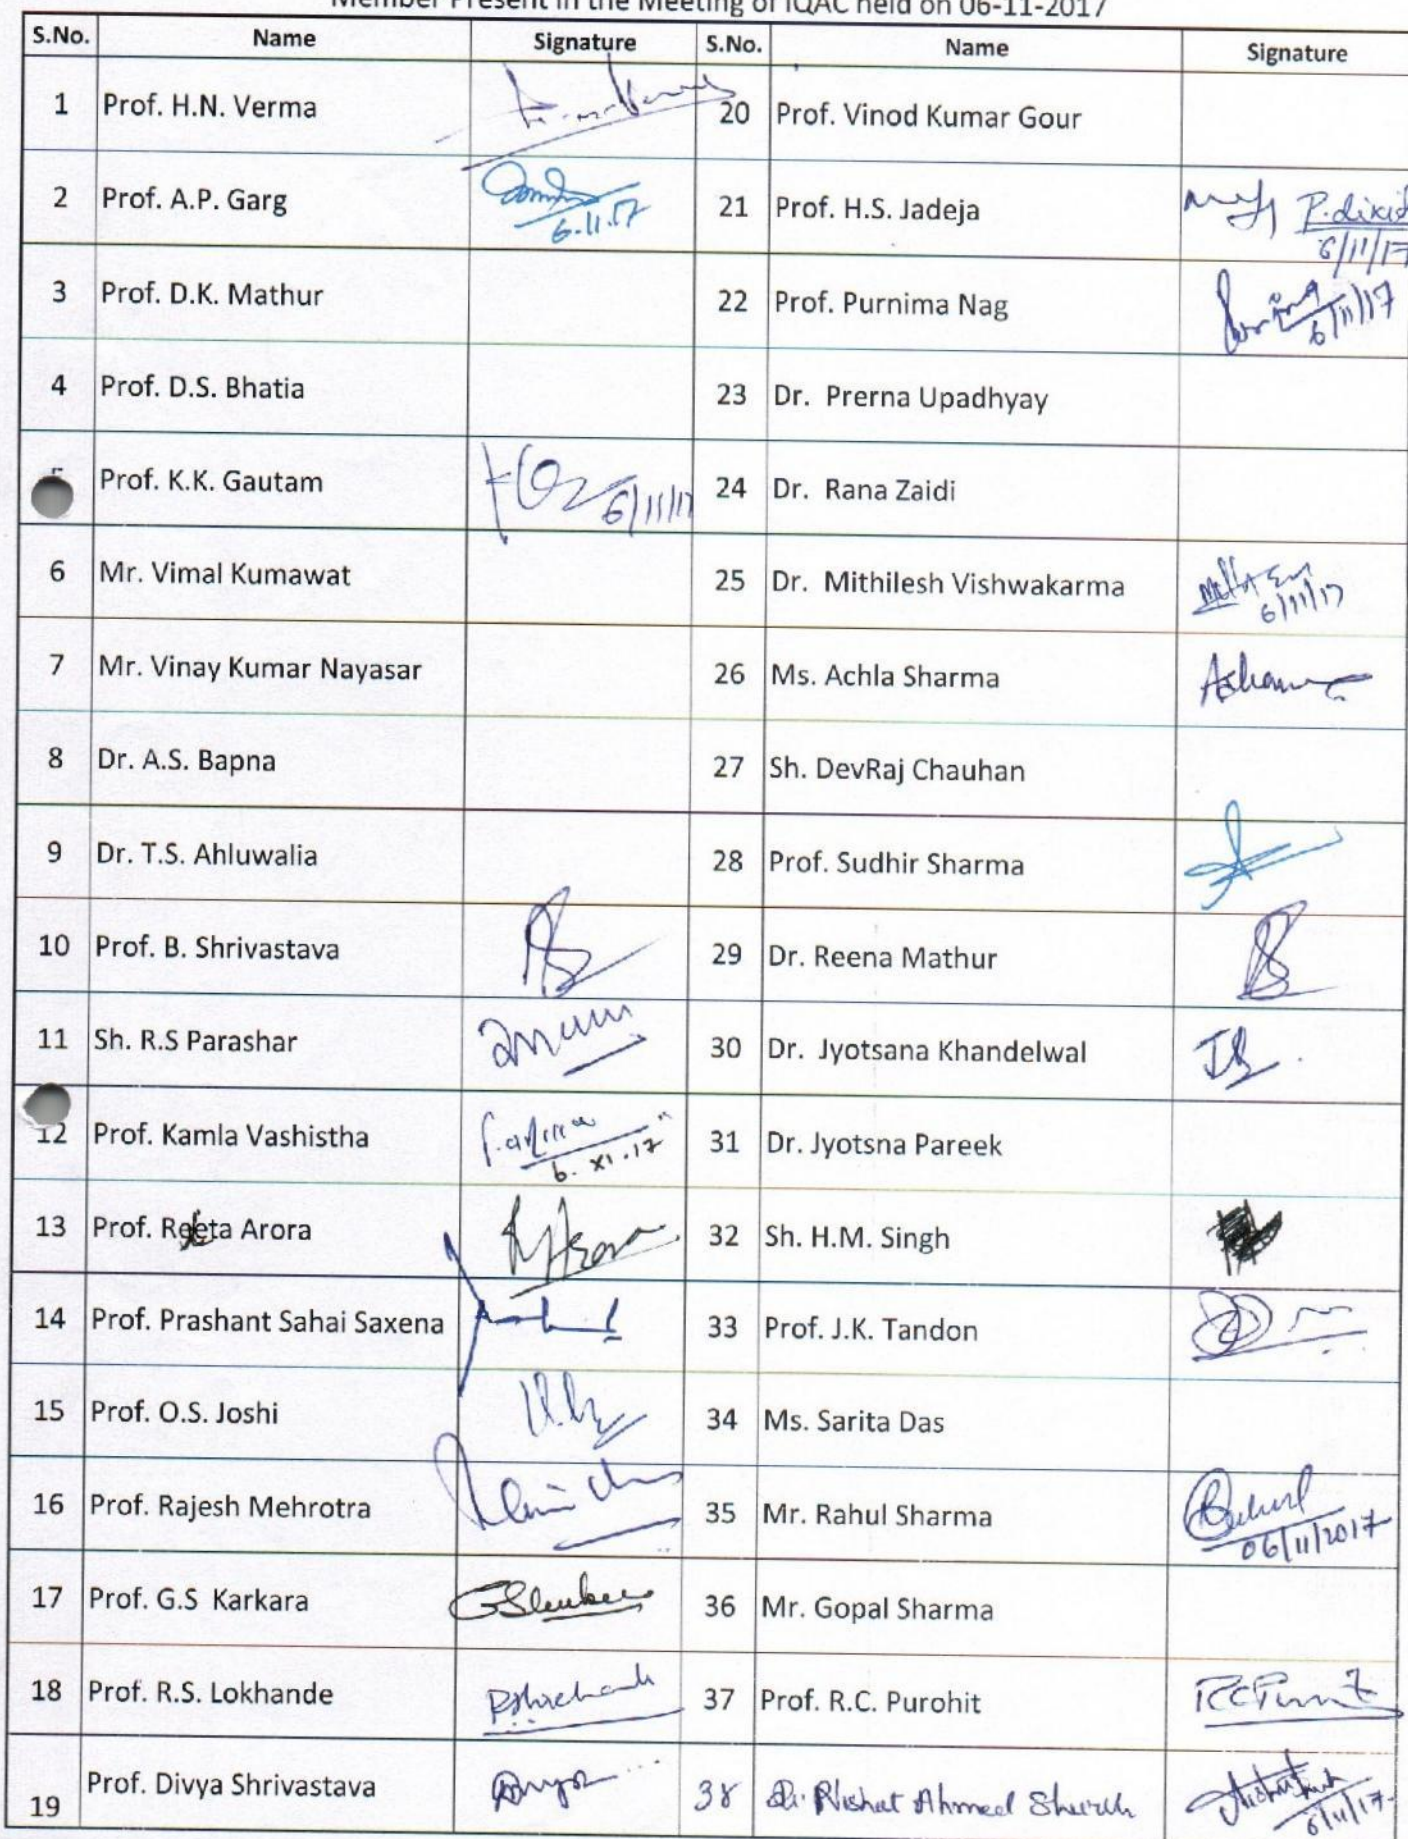 Member Present in the Meeting of IQAC held on 06-11-2017
S.No. Name Signature S.No. Name Signature
1 Prof. H.N. Verma 20 Prof. Vinod Kumar Gour
2 Prof. A.P. Garg 6.11.17 21 Prof. H.S. Jadeja P. dixit 6/11/17
3 Prof. D.K. Mathur 22 Prof. Purnima Nag 6/11/17
4 Prof. D.S. Bhatia 23 Dr. Prerna Upadhyay
Prof. K.K. Gautam 6/11/17 24 Dr. Rana Zaidi
6 Mr. Vimal Kumawat 25 Dr. Mithilesh Vishwakarma 6/11/17
7 Mr. Vinay Kumar Nayasar 26 Ms. Achla Sharma
8 Dr. A.S. Bapna 27 Sh. DevRaj Chauhan
9 Dr. T.S. Ahluwalia 28 Prof. Sudhir Sharma
10 Prof. B. Shrivastava 29 Dr. Reena Mathur
11 Sh. R.S Parashar 30 Dr. Jyotsana Khandelwal
12 Prof. Kamla Vashistha 6. XI. 17 31 Dr. Jyotsna Pareek
13 Prof. Reeta Arora 32 Sh. H.M. Singh
14 Prof. Prashant Sahai Saxena 33 Prof. J.K. Tandon
15 Prof. O.S. Joshi 34 Ms. Sarita Das
16 Prof. Rajesh Mehrotra 35 Mr. Rahul Sharma 06/11/2017
17 Prof. G.S Karkara 36 Mr. Gopal Sharma
18 Prof. R.S. Lokhande 37 Prof. R.C. Purohit
19 Prof. Divya Shrivastava 38 Dr. Nishat Ahmed Sheikh 6/11/17